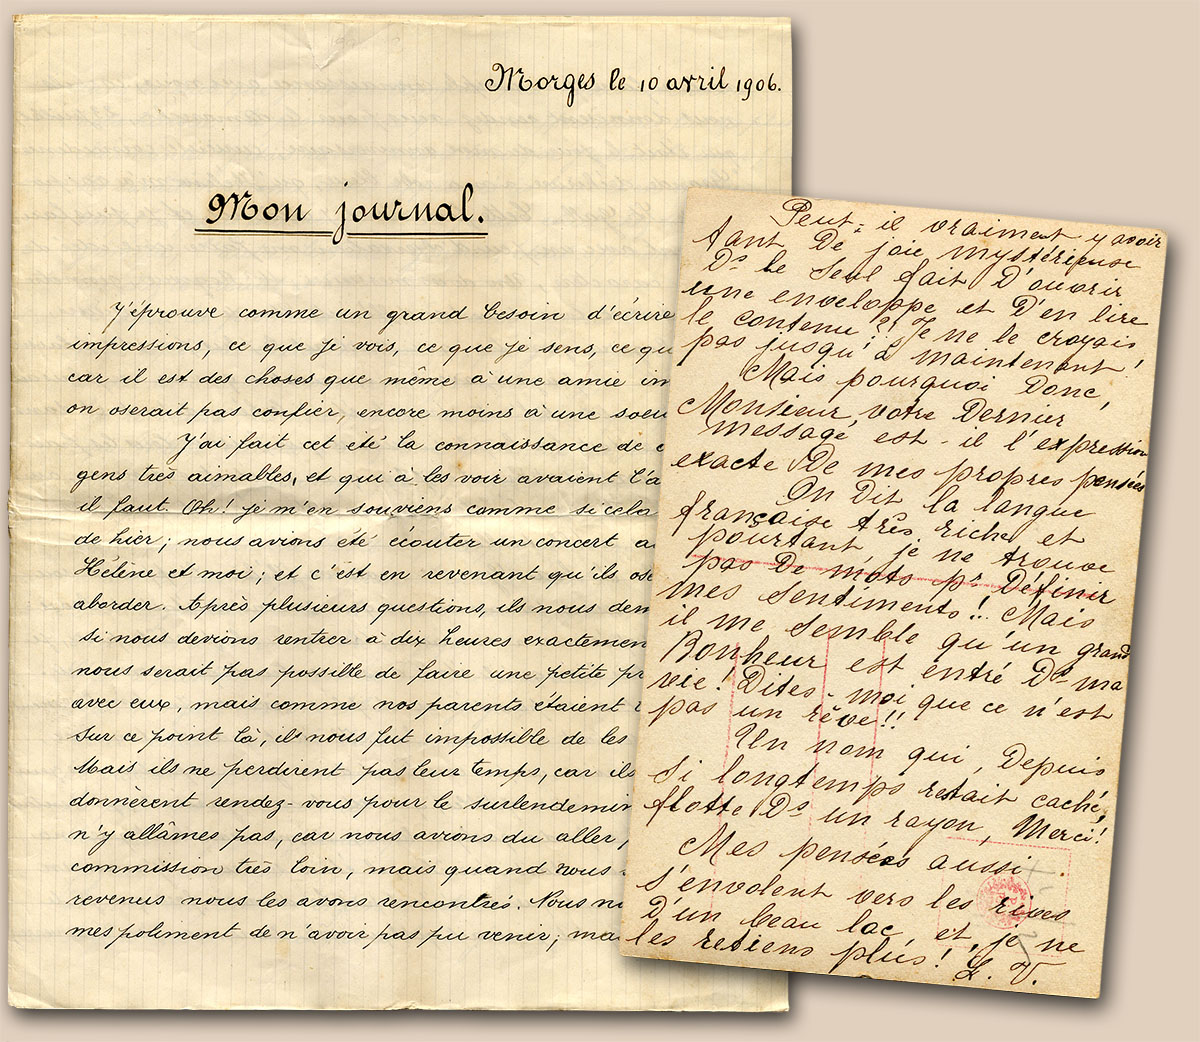 Morges le 10 avril 1906.
Mon journal.
J'éprouve comme un grand besoin d'écrire
impressions, ce que je vois, ce que je sens, ce qu
car il est des choses que même à une amie in
on oserait pas confier, encore moins à une soeu
J'ai fait cet été la connaissance de
gens très aimables, et qui à les voir avaient l'a
il faut. Oh! je m'en souviens comme si cela
de hier; nous avions été écouter un concert a
Hélène et moi; et c'est en revenant qu'ils ose
aborder. Après plusieurs questions, ils nous dem
si nous devions rentrer à dix heures exactemen
nous serait pas possible de faire une petite pr
avec eux, mais comme nos parents étaient
sur ce point là, ils nous fut impossible de les
Mais ils ne perdirent pas leur temps, car ils
donnèrent rendez-vous pour le surlendemin
n'y allâmes pas, car nous avions du aller,
commission très loin, mais quand nous
revenus nous les avons rencontrés. Nous n
mes poliment de n'avoir pas pu venir; ma
Peut-il vraiment y avoir
tant De joie mystérieuse
Ds le seul fait D'ouvrir
une enveloppe et D'en lire
le contenu?! Je ne le croyais
pas jusqu'à maintenant!
Mais pourquoi Donc,
Monsieur, votre Dernier
message, est-il l'expression
exacte De mes propres pensées
On Dit la langue
française très riche et
pourtant, je ne trouve
pas De mots pr Définir
mes sentiments!.. Mais
il me semble qu'un grand
Bonheur est entré Ds ma
vie! Dites-moi que ce n'est
pas un rêve!!
Un nom qui, Depuis
si longtemps restait caché,
flotte Ds un rayon, Merci!
Mes pensées aussi
s'envolent vers les rives
D'un beau lac, et, je ne
les retiens plus! L. V.